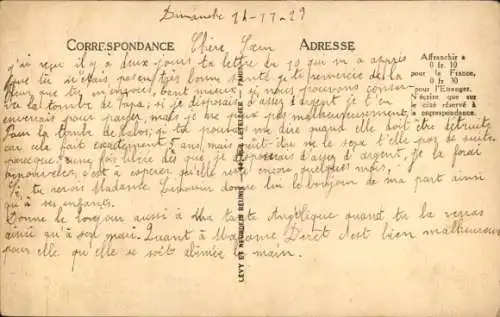 Dimanche 24-11-29
CORRESPONDANCE
Chère Sœur
ADRESSE
Affranchir à
0 fr. 10
pour la France,
0 fr. 30
pour l'Etranger.
N'écrire que sur
le côté réservé à
la correspondance.
j'ai reçu il y a deux jours ta lettre du 19 qui m'a appris
que tu n'étais pas en très bonne santé, je te remercie de la
fleur que tu m'envoies, tant mieux si nous pouvons conserver
la tombe de Papa; si je disposais d'assez d'argent je t'en
enverrais pour payer, mais je ne peux pas malheureusement,
Pour la tombe de si tu pouvais me dire quand elle doit être détruite
car cela fait exactement 5 ans, mais peut-être ne le sera-t'elle pas de suite
parceque une fois libéré dès que je disposerais d'assez d'argent, je la ferai
c'est à espérer qu'elle reste encore quelques mois,
Si tu revois Madame donne lui le bonjour de ma part ainsi
qu'à ses enfants.
Donne le bonjour aussi à Ma tante Angélique quand tu la verras
ainsi qu'à son mari. Quant à Madame c'est bien malheureux
pour elle qu'elle se soit abîmée la main.
LÉVY ET NEURDEIN RÉUNIS LETELLIER — PARIS